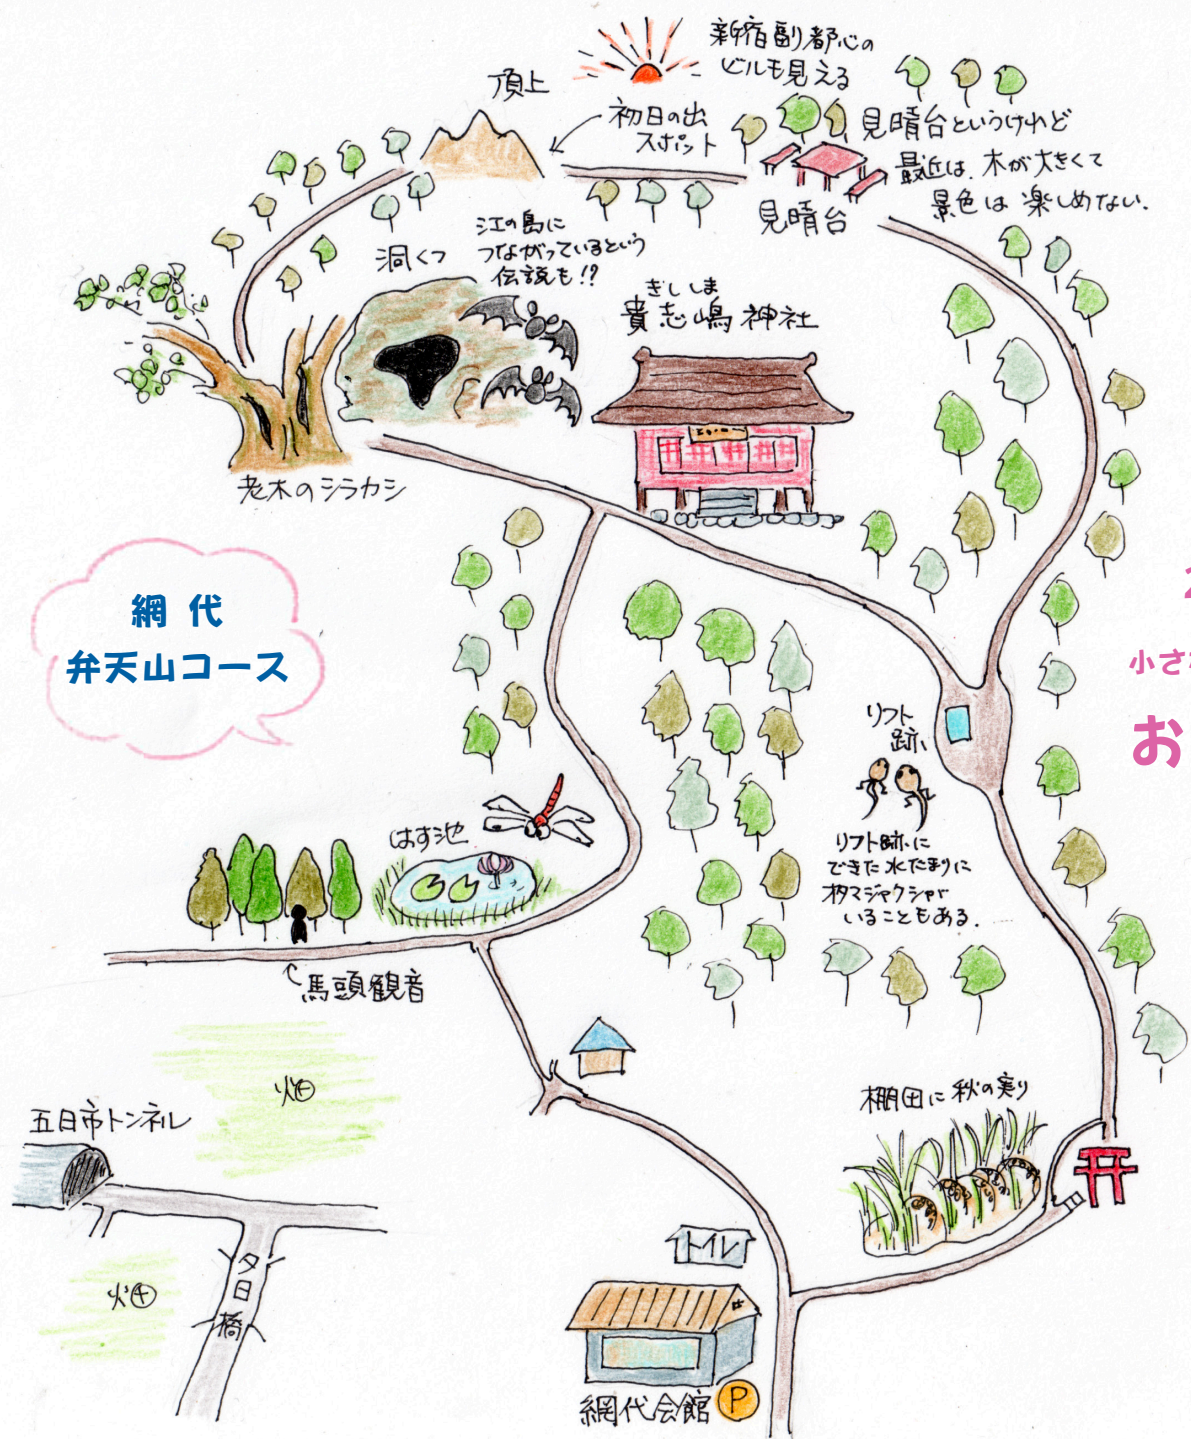 新宿副都心の
ビルも見える
頂上
初日の出
スポット
見晴台というけれど
最近は、木が大きくて
景色は楽しめない.
見晴台
江の島に
つながっているという
伝説も!?
洞くつ
ぎししま
貴志嶋神社
老木のシラカシ
網代
弁天山コース
小さな
お
リフト
跡
リフト跡に
できた水たまりに
オタマジャクシが
いることもある.
はす池
馬頭観音
畑
五日市トンネル
棚田に秋の実り
畑
夕日橋
トイレ
網代会館 P